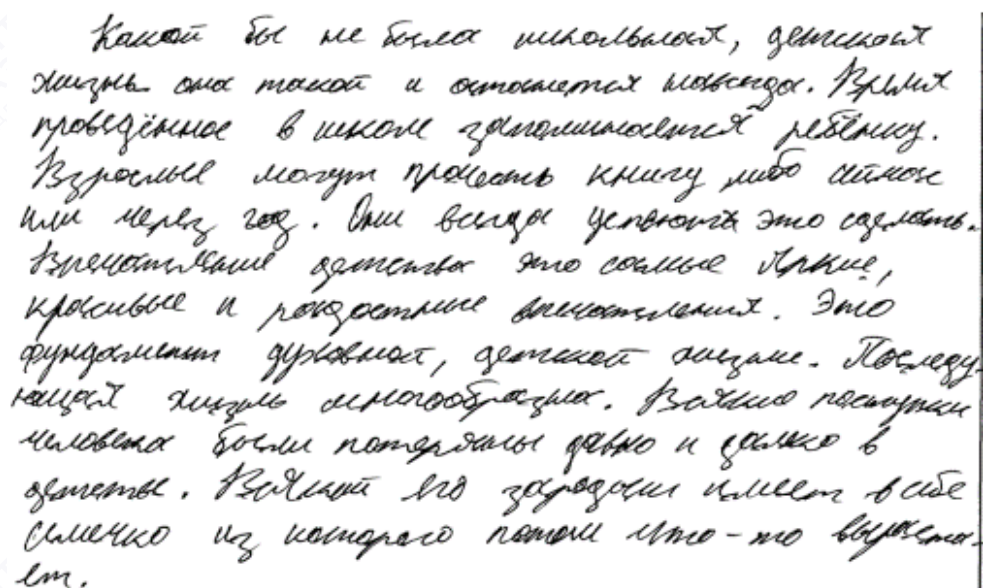 Какой бы не была школьная, детская
жизнь она такой и останется навсегда. Время
проведённое в школе запоминается ребёнку.
Взрослые могут прочесть книгу либо сейчас
или через год. Они всегда успеют это сделать.
Впечатление детства это самые яркие,
красивые и радостные впечатления. Это
фундамент духовной, детской жизни. Последу-
ющая жизнь многообразна. Всякие поступки
человека были потеряны давно и далеко в
детстве. Всякий его зародыш имеет в себе
семечко из которого потом что-то вырозта-
ет.